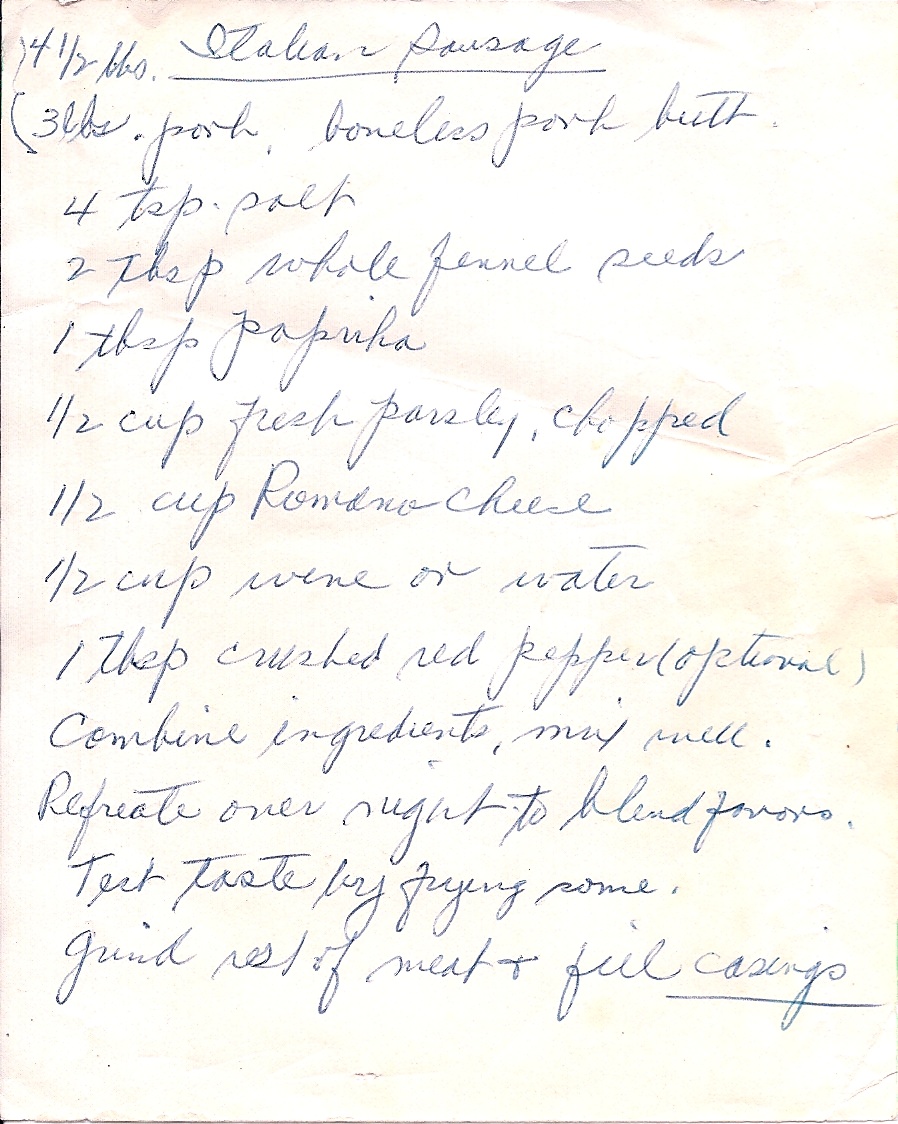 4 1/2 lbs. Italian Sausage
(3lbs. pork, boneless pork butt.
4 tsp. salt
2 Tbsp whole fennel seeds
1 tbsp paprika
1/2 cup fresh parsley, chopped
1/2 cup Romano Cheese
1/2 cup wine or water
1 Tbsp crushed red pepper (optional)
Combine ingredients, mix well.
Refreate over night to blend favors.
Test taste by frying some.
Grind rest of meat & fill casings